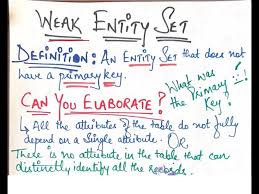 WEAK ENTITY SET
DEFINITION: AN ENTITY SET that does not
have a primary key.
What was
the Primary
Key!
CAN YOU ELABORATE?
All the attributes of the table do not fully
depend on a Single attribute. OR
There is no attribute in the table that can
distinctly identify all the records.